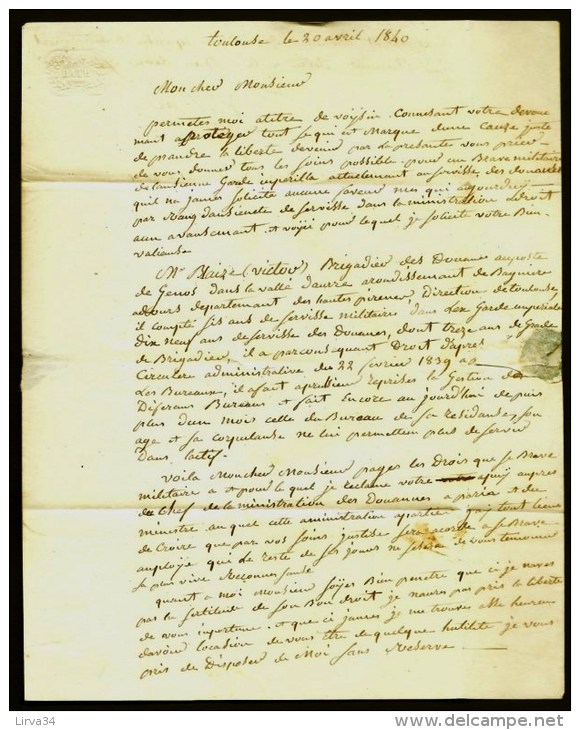 toulouse le 20 avril 1840
Mon cher Monsieur
permetes moi atitre de voysin. Connesant votre devoue
mant a protéger tout se qui est Marque dune cauze juste
de prandre la liberte devenir par la presante vous prier
de vous donner tous les soins possible pour un Brave militaire
de lansienne Garde imperialle actuelement au servisse des douannes
quil na james solicité aucune faveur mes qui aujourdhui
par Rang dansieneté de servisse dans la ministration a droit
aun avansemant. et voyié pour lequel je solicite votre Bien
valianse
Mr Blaize (victor) Brigadier des Douane auposte
de Genos dans la vallé daurre arondissement de Bagniere
adours departemant des hautes pirenee Direction de toulouse,
il compte sis ans de servisse militaire dans Lex Garde imperiale
Dix neuf ans de servisse des Douanes, dont treze ans de Grade
de Brigadier, il a parconsequant Droit d'apres
Circulere administrative du 22 fevrier 1839 a
Les Bureaux, il a fait aprusieur reprises la Gestion de
Diferans Bureaus et fait Encore au jourdhui de puis
plus dun mois cellui du Bureau de sa residanse, son
age et sa corpulanse ne lui permettent plus de servir
Dans lactif.
voila Mon cher Monsieur pages les Drois que se Brave
militaire a et pour le quel je réclame votre apuy aupres
du Chef de la ministration des Douannes a paris et du
ministre au quel cette aministration apartien j'ay tout lieu
de Croire que par vos soins justise sera acordé a se Brave
employé qui le reste de ses jours ne sesera de vous temonier
la plus vive Reconnessanse
quant a moi Monsieur soyes Bien penetre que ci je naves
pas la sertitude de son Bon droit je naures pas pris la liberte
de vous inportuné. et que ci james je me trouves asse heureux
davoir locasion de vous etre de quelque hutilité je vous
prie de Disposer de Moi sans Reserve
Lirva34
delcampe.net